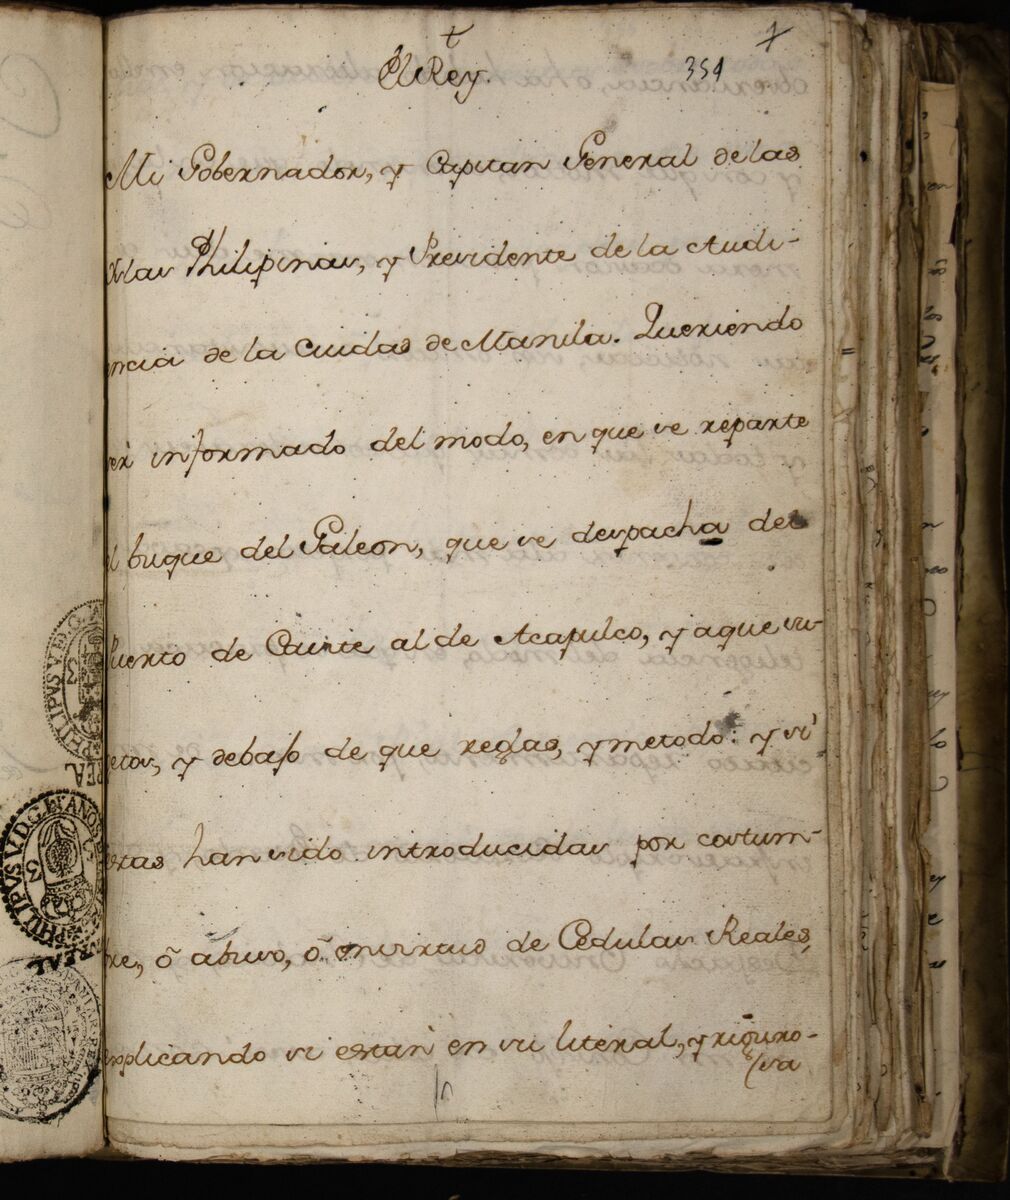 †
El Rey.
354
Mi Gobernador, y Capitan General de las
Islas Philipinas, y Presidente de la Audi-
encia de la Ciudad de Manila. Queriendo
ser informado del modo, en que se reparte
el buque del Galeon, que se despacha del
Puerto de Cavite al de Acapulco, y a que su-
getos, y debajo de que reglas, y metodo: y si
estas han sido introducidas por costum-
bre, ô abuso, ô en virtud de Cedulas Reales,
explicando si están en su literal, y riguro-
sa
PHILIPVS V D G
PHILIPVS V D G HISPANIAR REX